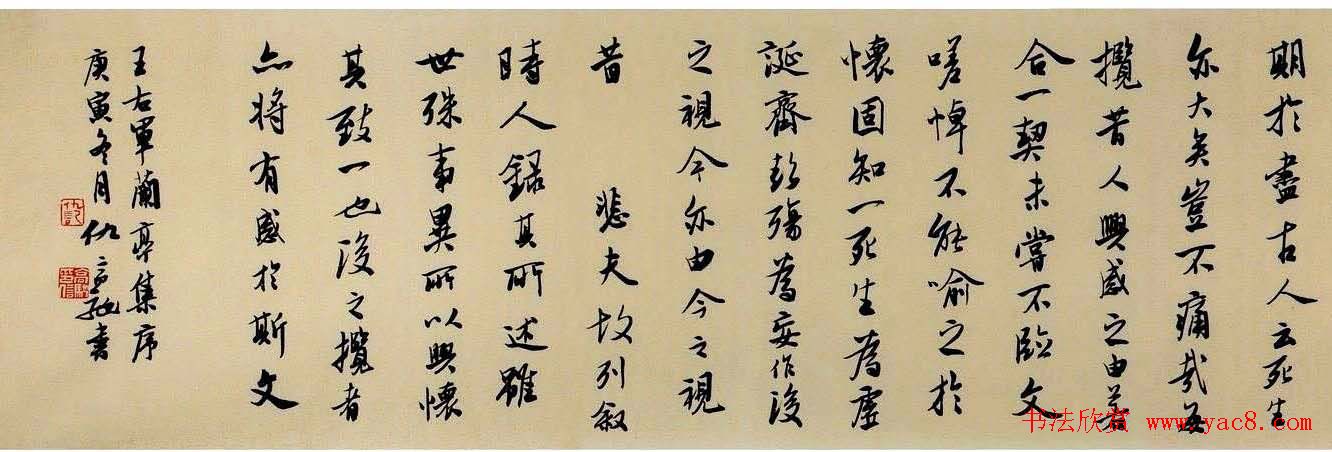 期於盡古人云死生
亦大矣豈不痛哉每
攬昔人興感之由若
合一契未嘗不臨文
嗟悼不能喻之於
懷固知一死生為虛
誕齊彭殤為妄作後
之視今亦由今之視
昔 悲夫故列敘
時人錄其所述雖
世殊事異所以興懷
其致一也後之攬者
亦將有感於斯文
王右軍蘭亭集序
庚寅冬月仇高馳書
书法欣赏 www.yac8.com